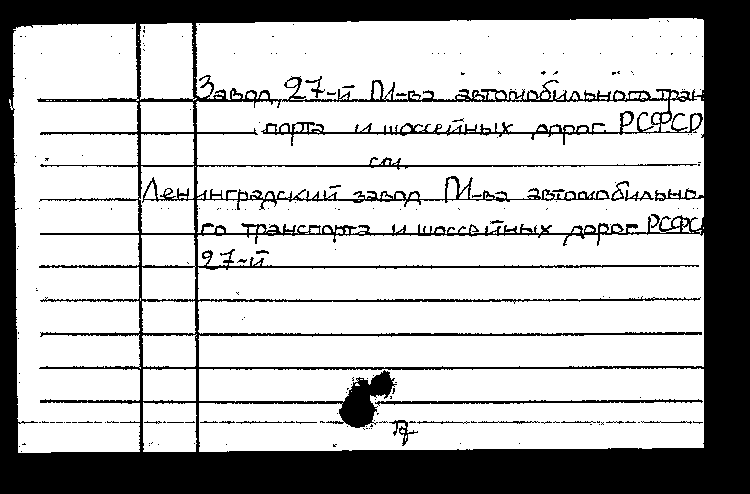 Завод, 27-й М-ва автомобильного тран
порта и шоссейных дорог РСФСР,
см.
Ленинградский завод М-ва автомобильно-
го транспорта и шоссейных дорог РСФСР
27-й